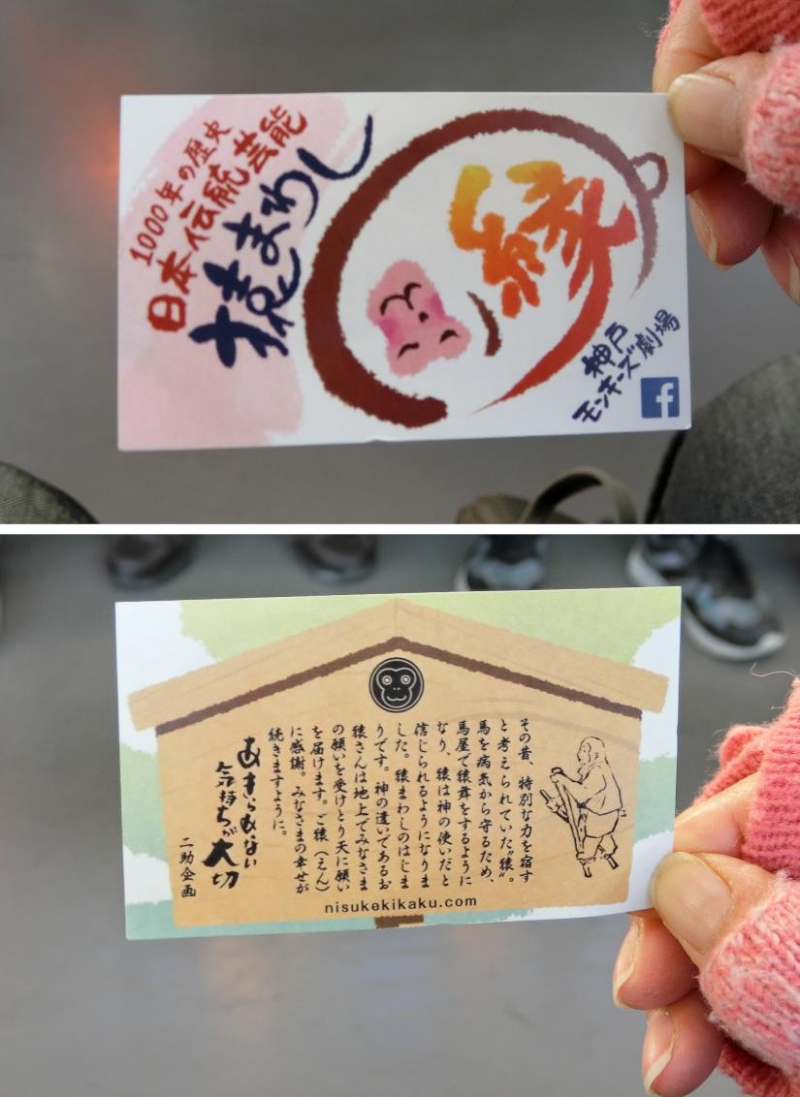 1000年の歴史
日本伝統芸能
猿まわし
縁
神戸
モンキーズ劇場
f
その昔、特別な力を宿す
と考えられていた“猿”。
馬を病気から守るため、
馬屋で猿舞をするように
なり、猿は神の使いだと
信じられるようになりま
した。猿まわしのはじま
りです。神の遣いであるお
猿さんは地上でみなさま
の願いを受けとり天に願い
を届けます。ご猿（えん）
に感謝。みなさまの幸せが
続きますように。
あきらめない
気持ちが大切
二助企画
nisukekikaku.com